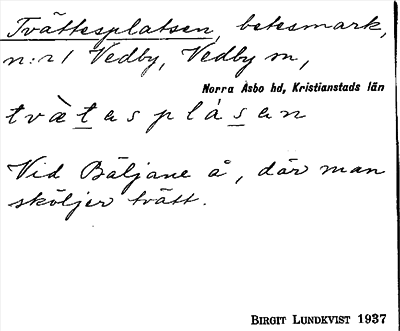 Tvättesplatsen, betesmark,
n:r 1 Vedby, Vedby sn,
Norra Åsbo hd, Kristianstads län
tvàtasplásan
Vid Bäljane å, där man
sköljer tvätt.
BIRGIT LUNDKVIST 1937